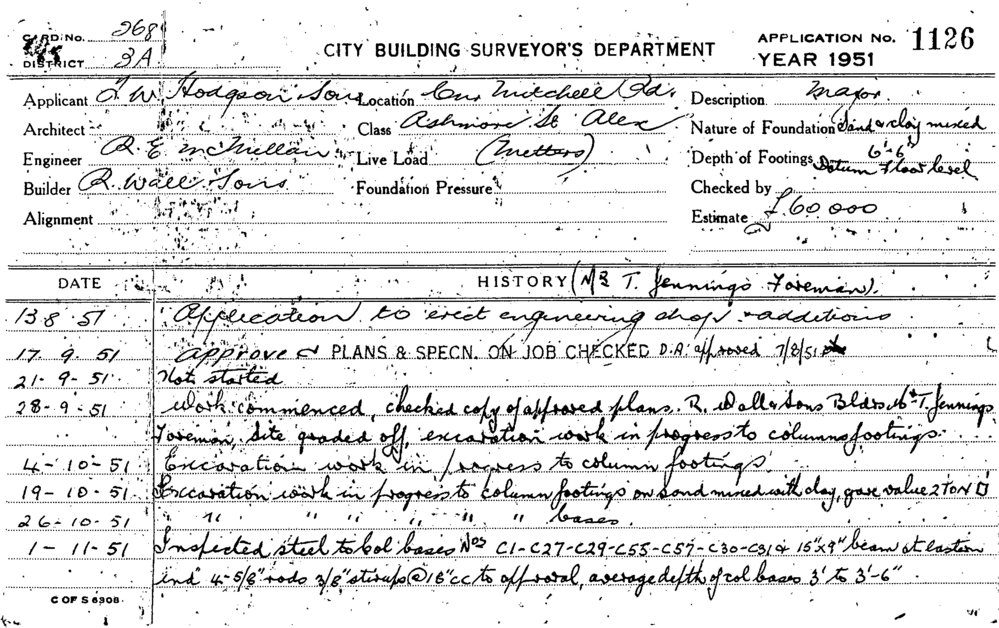 CARD No. 268
DISTRICT 3A
CITY BUILDING SURVEYOR'S DEPARTMENT
APPLICATION No. 1126
YEAR 1951
Applicant F. W. Hodgson Sons Location Cnr Mitchell Rd. Description Major
Architect Class Ashmore St Alex Nature of Foundation Sand & clay mixed
Engineer R. E. McMillan Live Load (Metters) Depth of Footings 6'-6"
Datum Floor level
Builder R. Wall Sons Foundation Pressure Checked by
Alignment Estimate £60,000
DATE HISTORY (Mr T. Jennings Foreman).
13 8 51 Application to erect engineering shop & additions
17. 9. 51 Approved PLANS & SPECN. ON JOB CHECKED D.A. approved 7/8/51
21-9-51 Not started
28-9-51 Work commenced, checked copy of approved plans. R. Wall & Sons Bldrs Mr T. Jennings
Foreman, Site graded off, excavation work in progress to columns footings.
4-10-51 Excavation work in progress to column footings.
19-10-51 Excavation work in progress to column footings on sand mixed with clay, gave value 2 TON □
26-10-51 " " " " " " " bases.
1-11-51 Inspected steel to Col bases Nos C1-C27-C29-C55-C57-C30-C31 & 15"x9" beam at eastern
end 4-5/8" rods 3/8" stirups @ 18" cc to approval, average depth of col bases 3' to 3'-6"
C OF S 6308